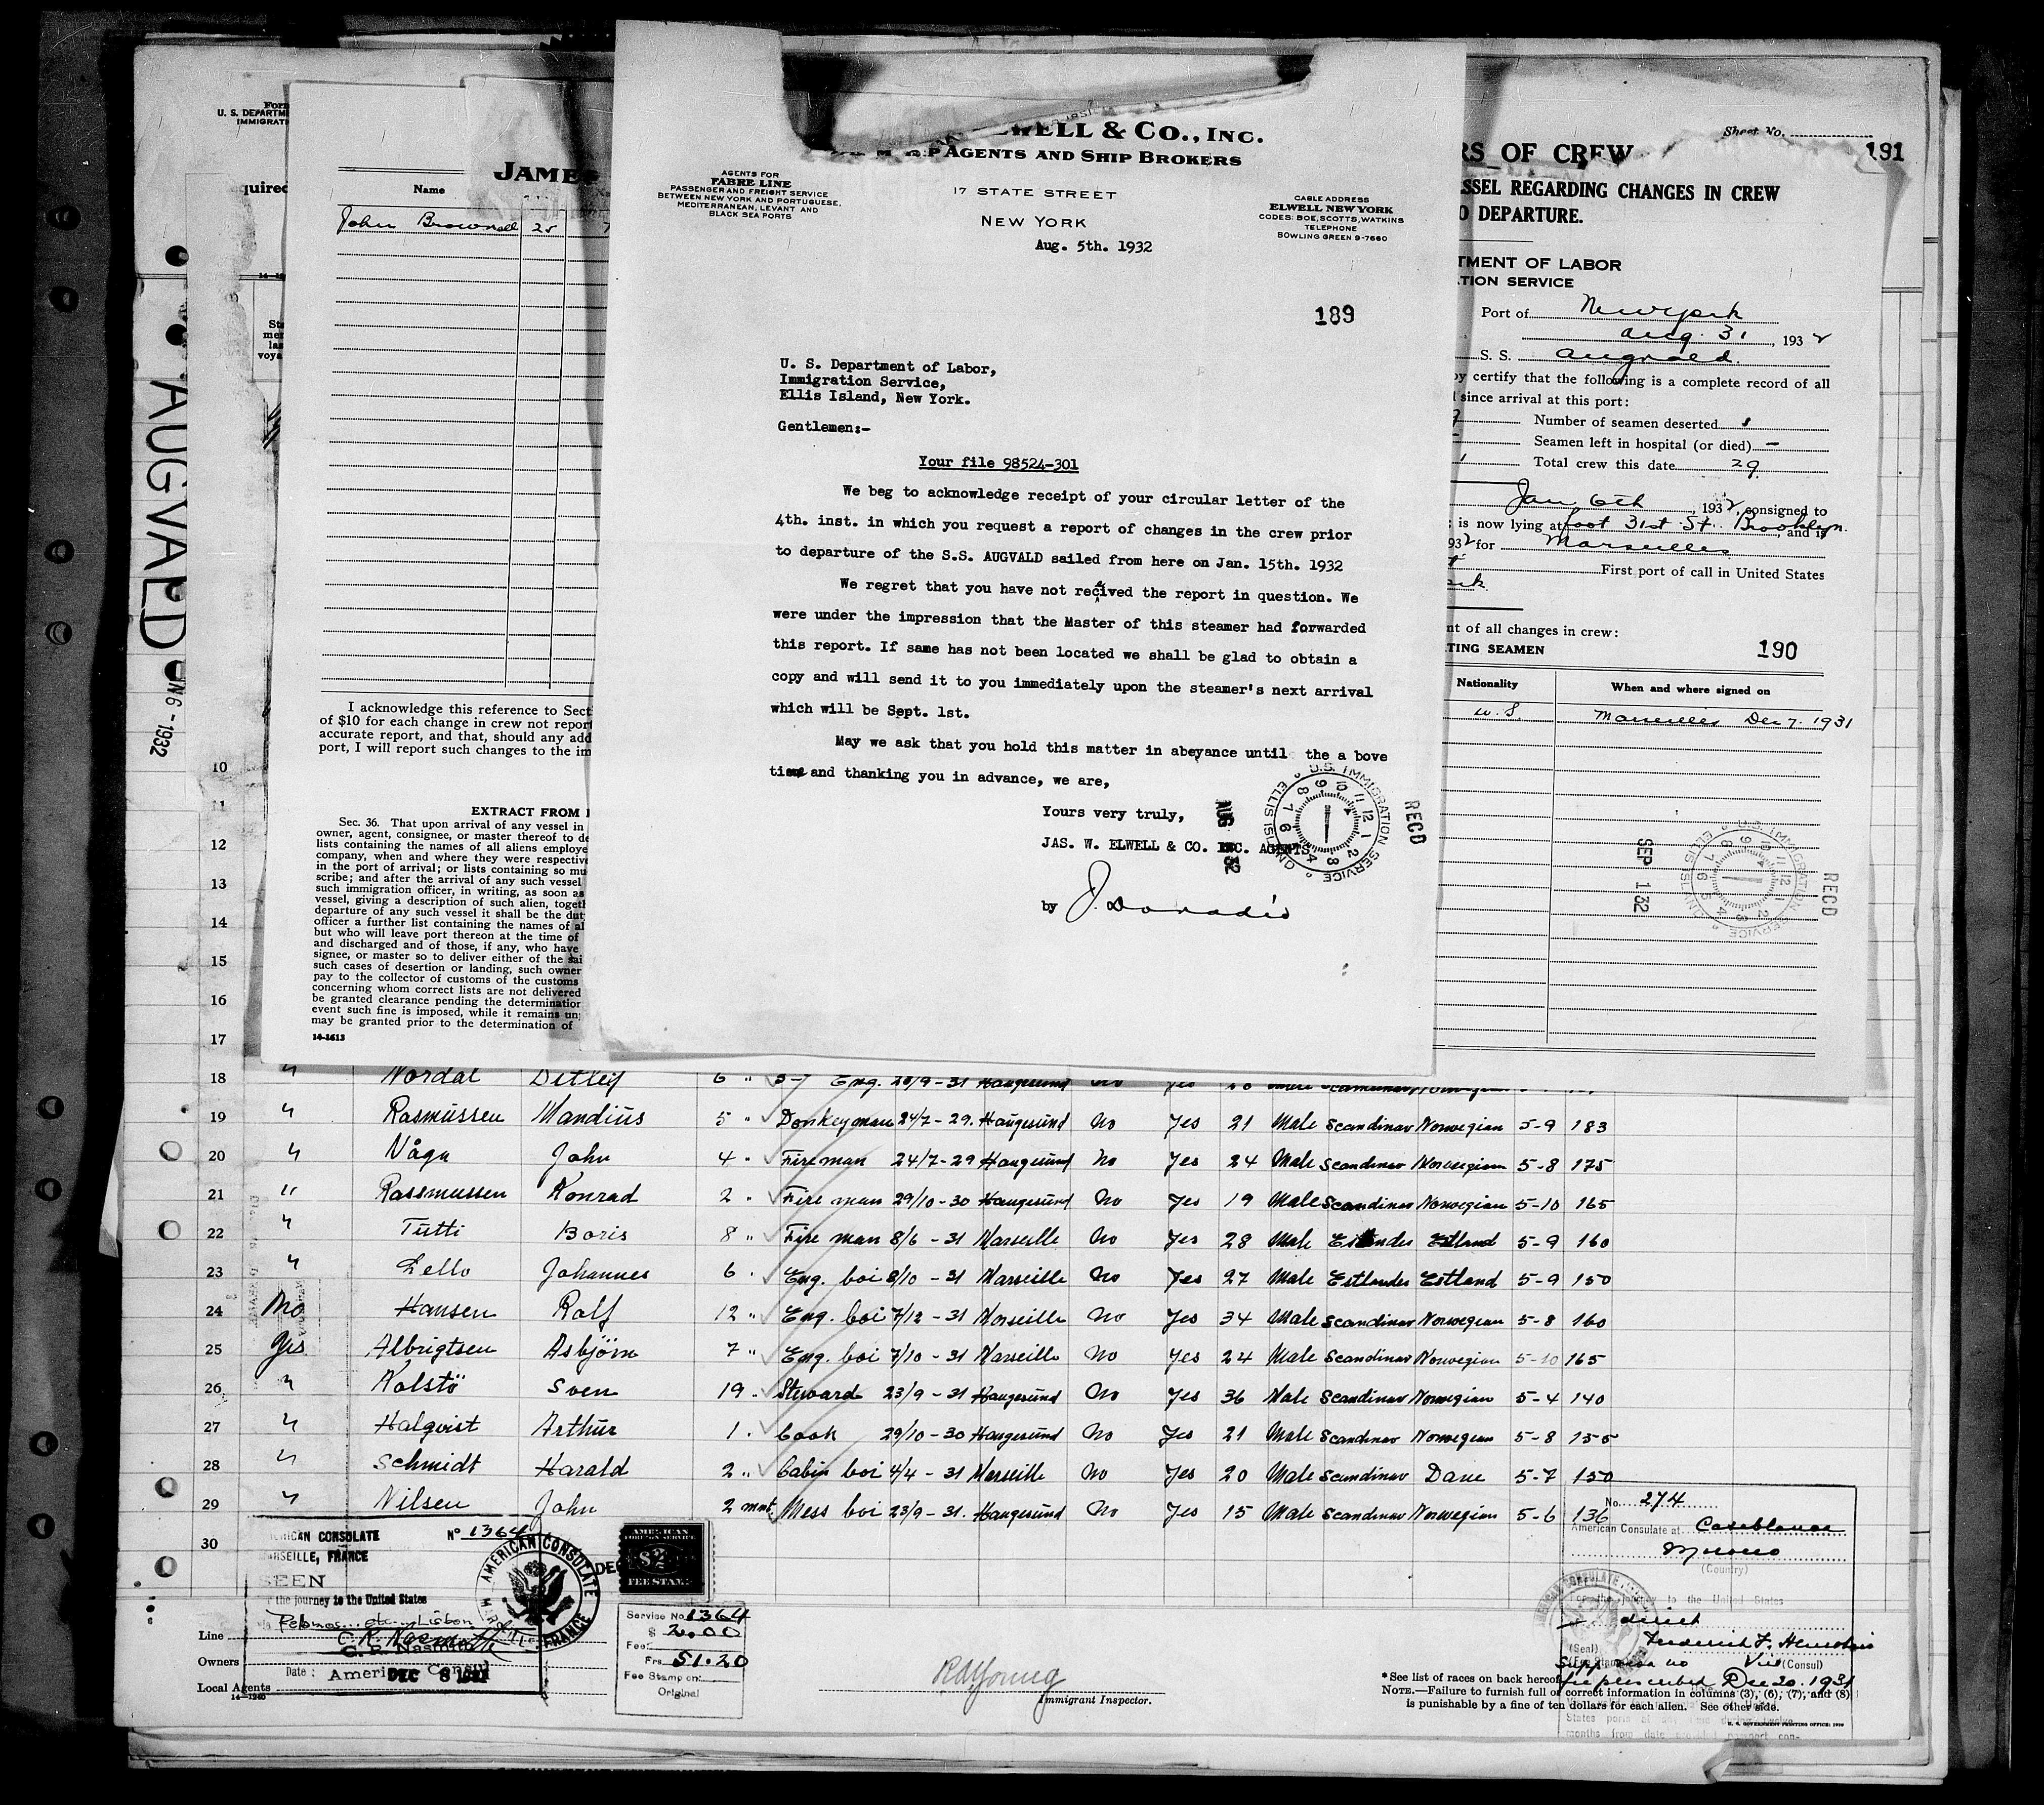 Form
U. S. DEPARTM
IMMIGRATI
quired
Name
JAMES
John Brownell 25
I acknowledge this reference to Sect
of $10 for each change in crew not report
accurate report, and that, should any add
port, I will report such changes to the im
EXTRACT FROM I
Sec. 36. That upon arrival of any vessel in
owner, agent, consignee, or master thereof to de
lists containing the names of all aliens employe
company, when and where they were respectiv
in the port of arrival; or lists containing so mu
scribe; and after the arrival of any such vessel
such immigration officer, in writing, as soon as
vessel, giving a description of such alien, togeth
departure of any such vessel it shall be the dut
officer a further list containing the names of al
but who will leave port thereon at the time of
and discharged and of those, if any, who have
signee, or master so to deliver either of the sai
such cases of desertion or landing, such owner
pay to the collector of customs of the customs
concerning whom correct lists are not delivered
be granted clearance pending the determination
event such fine is imposed, while it remains un
may be granted prior to the determination of
14-1613
ELWELL & CO., INC.
P AGENTS AND SHIP BROKERS
AGENTS FOR
FABRE LINE
PASSENGER AND FREIGHT SERVICE
BETWEEN NEW YORK AND PORTUGUESE,
MEDITERRANEAN, LEVANT AND
BLACK SEA PORTS
17 STATE STREET
NEW YORK
CABLE ADDRESS
ELWELL NEW YORK
CODES: BOE, SCOTTS, WATKINS
TELEPHONE
BOWLING GREEN 9-7660
Aug. 5th. 1932
189
U. S. Department of Labor,
Immigration Service,
Ellis Island, New York.
Gentlemen:-
Your file 98524-301
We beg to acknowledge receipt of your circular letter of the
4th. inst. in which you request a report of changes in the crew prior
to departure of the S.S. AUGVALD sailed from here on Jan. 15th. 1932
We regret that you have not received the report in question. We
were under the impression that the Master of this steamer had forwarded
this report. If same has not been located we shall be glad to obtain a
copy and will send it to you immediately upon the steamer's next arrival
which will be Sept. 1st.
May we ask that you hold this matter in abeyance until the a bove
time and thanking you in advance, we are,
Yours very truly,
JAS. W. ELWELL & CO. INC. AGENTS
by J. Donadio
U.S. IMMIGRATION SERVICE ELLIS ISLAND
RECD
AUG 32
Sheet No.
191
RS OF CREW
SSEL REGARDING CHANGES IN CREW
O DEPARTURE.
TMENT OF LABOR
TION SERVICE
Port of New York
Aug. 31, 1932
S. S. Augvald.
by certify that the following is a complete record of all
since arrival at this port:
Number of seamen deserted 1
Seamen left in hospital (or died) -
Total crew this date 29
Jan 6th, 1932, consigned to
is now lying at foot 31st St. Brooklyn, and is
932 for Marseilles
First port of call in United States
nt of all changes in crew:
TING SEAMEN
190
Nationality When and where signed on
U. S. Marseilles Dec 7. 1931
SEP 1 32
U.S. IMMIGRATION SERVICE ELLIS ISLAND
RECD
AUGVALD
JAN 6 - 1932
10
11
12
13
14
15
16
17
18 " Nordal Ditlef 6 " 3- Eng. 23/9-31 Haugesund No Yes
19 " Rasmussen Mandius 5 " Donkeyman 24/7-29. Haugesund No Yes 21 Male Scandinav Norwegian 5-9 183
20 " Våga John 4 " Fireman 24/7-29 Haugesund No Yes 24 Male Scandinav Norwegian 5-8 175
21 " Rassmussen Konrad 2 " Fire man 29/10-30 Haugesund No Yes 19 Male Scandinav Norwegian 5-10 165
22 " Tutti Boris 8 " Fire man 8/6-31 Marseille No Yes 28 Male Estlander Estland 5-9 160
23 " Lello Johannes 6 " Eng. boi 8/10-31 Marseille No Yes 27 Male Estlander Estland 5-9 150
24 No Hansen Rolf 12 " Eng. boi 7/12-31 Marseille No Yes 34 Male Scandinav Norwegian 5-8 160
25 Yes Albrigtsen Asbjörn 7 " Eng. boi 7/10-31 Marseille No Yes 24 Male Scandinav Norwegian 5-10 165
26 " Kolstö Sven 19 " Steward 23/9-31 Haugesund No Yes 36 Male Scandinav Norwegian 5-4 140
27 " Halqvist Arthur 1 " Cook 29/10-30 Haugesund No Yes 21 Male Scandinav Norwegian 5-8 155
28 " Schmidt Harald 2 " Cabin boi 4/4-31 Marseille No Yes 20 Male Scandinav Dane 5-7 150
29 " Nilsen John 2 mnt. Mess boi 23/9-31. Haugesund No Yes 15 Male Scandinav Norwegian 5-6 136
30
RICAN CONSULATE No 1364
ARSEILLE, FRANCE
SEEN
the journey to the United States
etc. Lisbon
C. R. Nasmith
American Consul
Date: DEC 8 1931
AMERICAN CONSULATE MARSEILLE FRANCE
AMERICAN
FOREIGN SERVICE
$2
FEE STAMP
Service No 1364
$ 2.00
Fee:
Frs 51.20
Fee Stamp on:
Original
Line
Owners
Local Agents
14-1240
R D Young
Immigrant Inspector.
No. 274
American Consulate at Casablanca
Morocco
(Country)
For the journey to the United States
direct
(Seal)
Vice (Consul)
fee prescribed Dec 20. 1931
*See list of races on back hereof
NOTE.—Failure to furnish full or correct information in columns (3), (6), (7), and (8)
is punishable by a fine of ten dollars for each alien. See other side.
U. S. GOVERNMENT PRINTING OFFICE